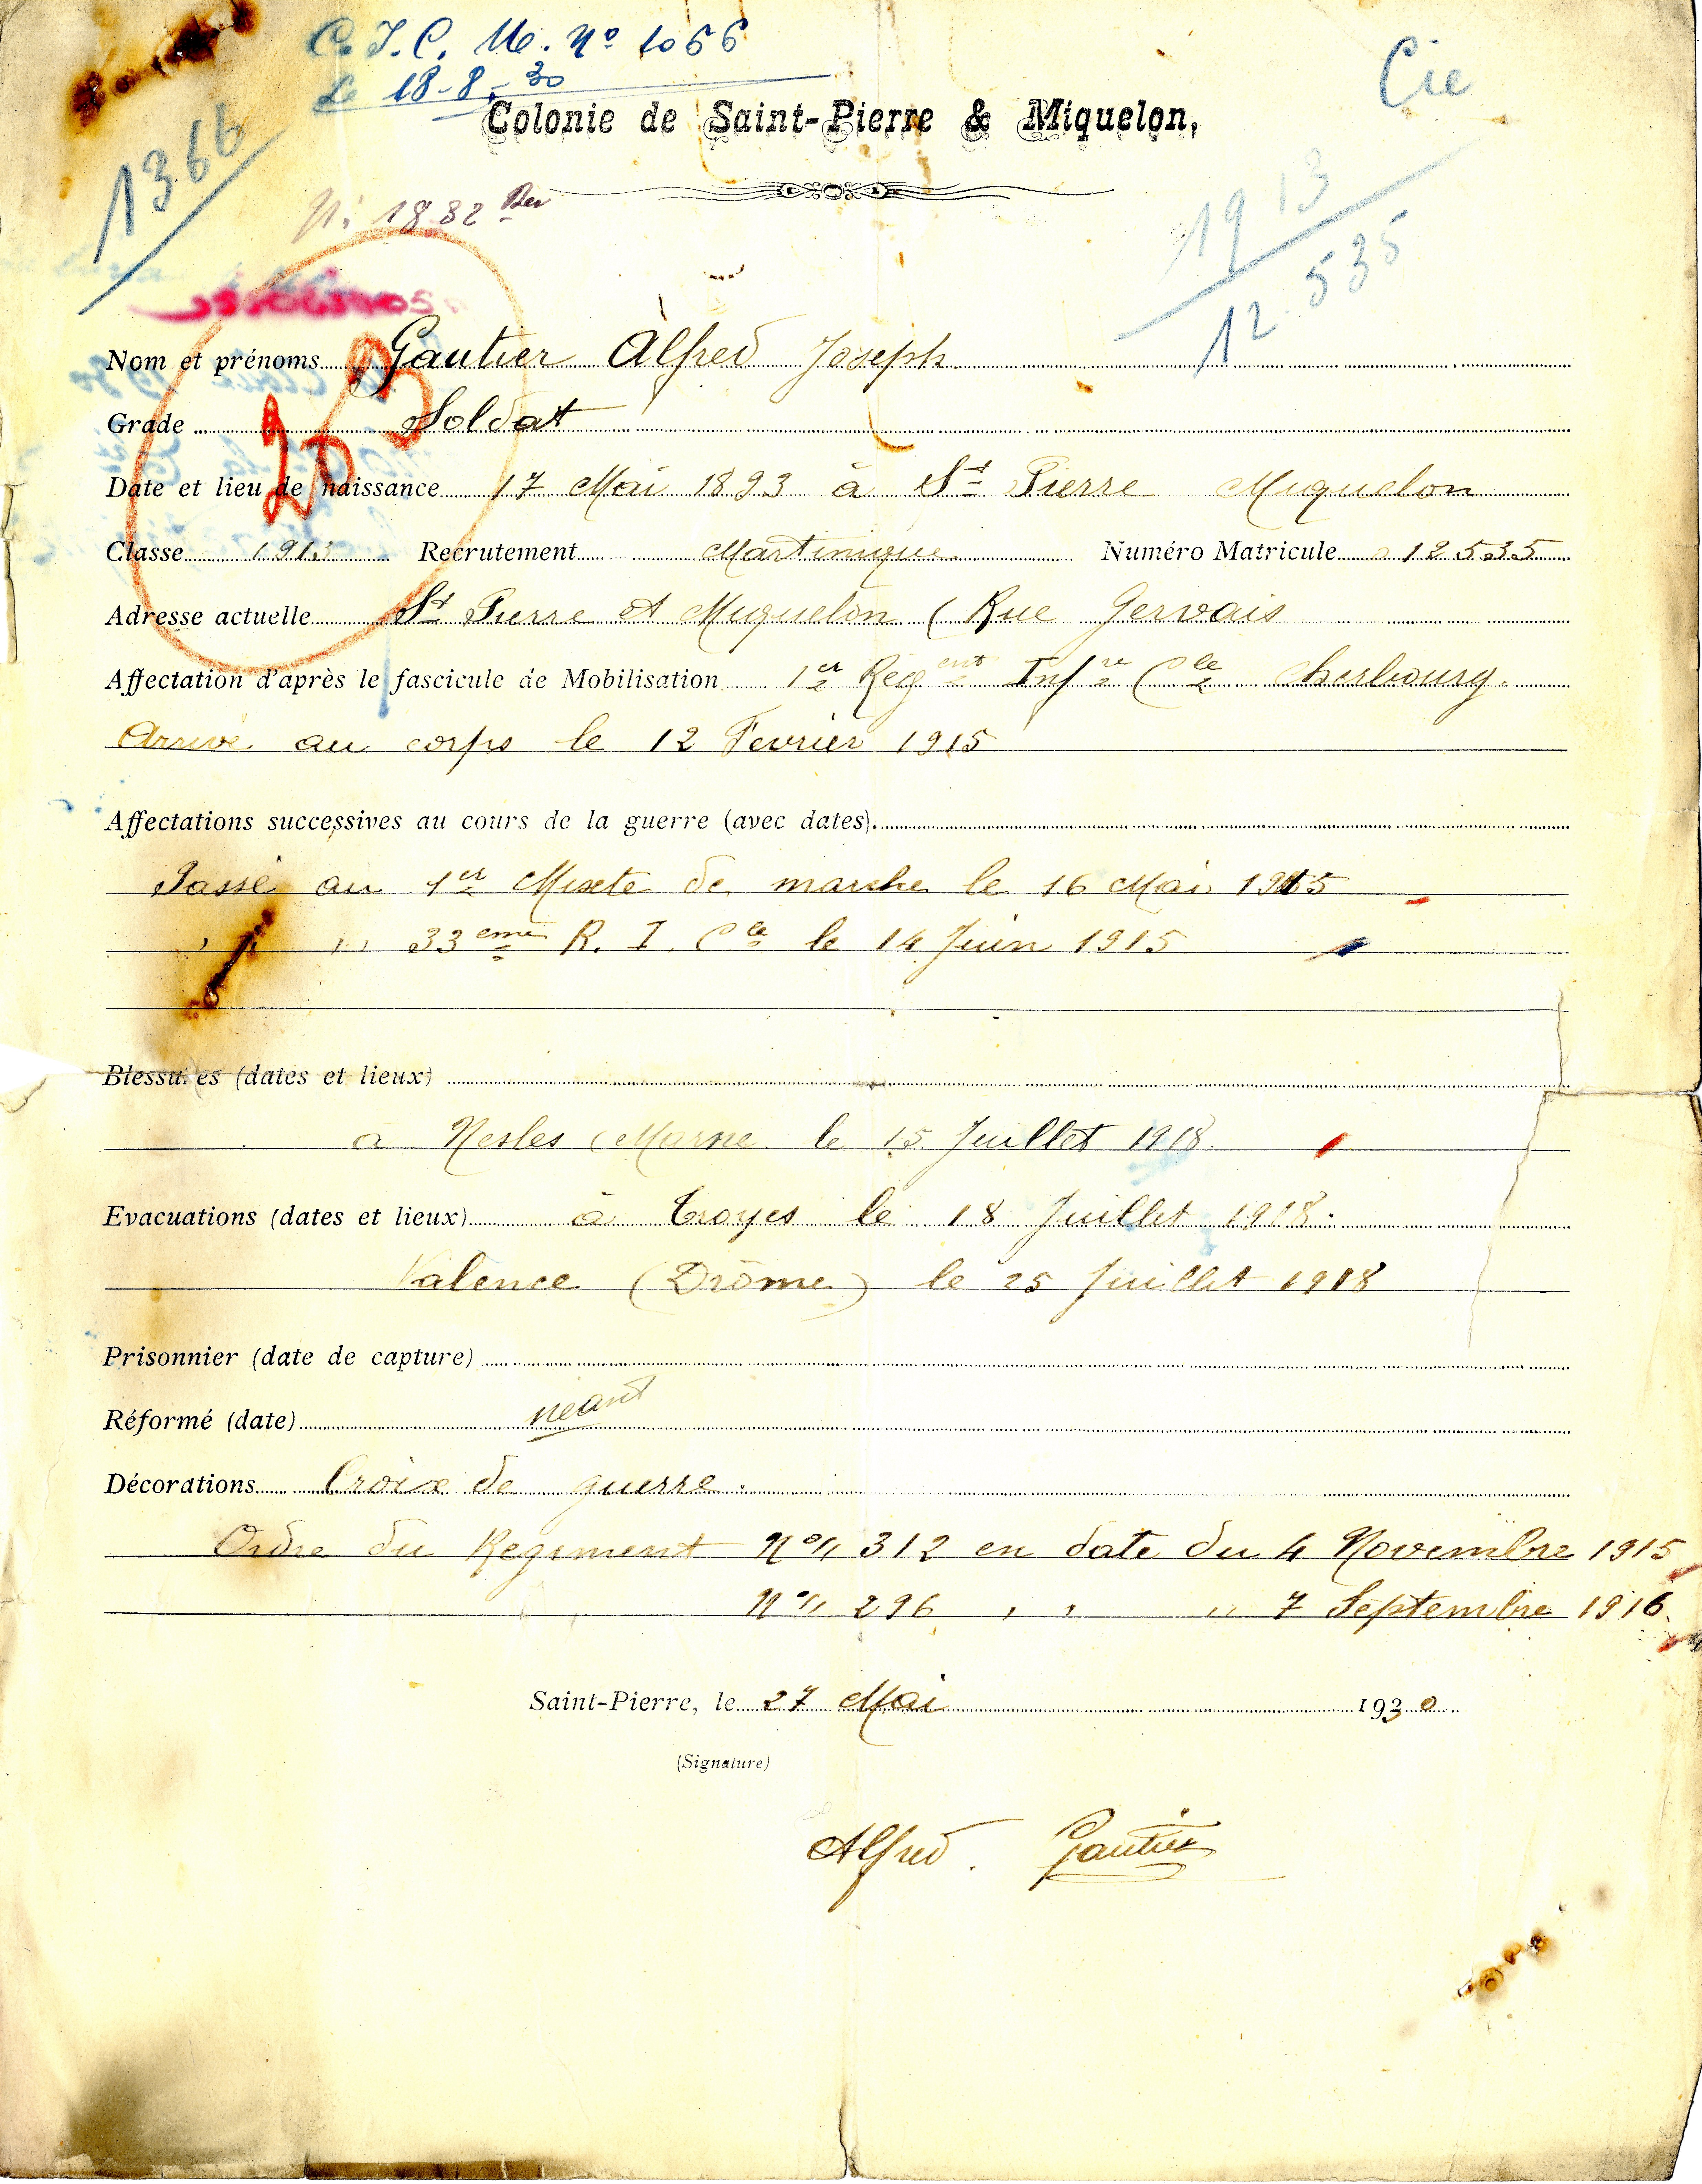 C. T. C. M. Nº 1066
Le 18-8-30
Cie
Colonie de Saint-Pierre & Miquelon,
1366
Nº 1832 Rev
1913
12.535
203
Nom et prénoms Gautier Alfred Joseph
Grade Soldat
Date et lieu de naissance 17 Mai 1893 à St Pierre Miquelon
Classe 1913 Recrutement Martinique Numéro Matricule 12535
Adresse actuelle St Pierre et Miquelon ( Rue Gervais
Affectation d'après le fascicule de Mobilisation 1er Regent Infre Cle Cherbourg.
Arrivé au corps le 12 Fevrier 1915
Affectations successives au cours de la guerre (avec dates).
Passé au 1er Mixte de marche le 16 Mai 1915
" " " 33eme R. I. Cle le 14 Juin 1915
Blessures (dates et lieux)
a Nesles (Marne le 15 Juillet 1918.
Evacuations (dates et lieux) à Troyes le 18 Juillet 1918.
Valence (Drôme) le 25 Juillet 1918
Prisonnier (date de capture)
Réformé (date) neant
Décorations Croix de guerre.
Ordre du Regiment No 312 en date du 4 Novembre 1915
No 296 " " " 7 Septembre 1916
Saint-Pierre, le 27 Mai 1930
(Signature)
Alfred. Gautier